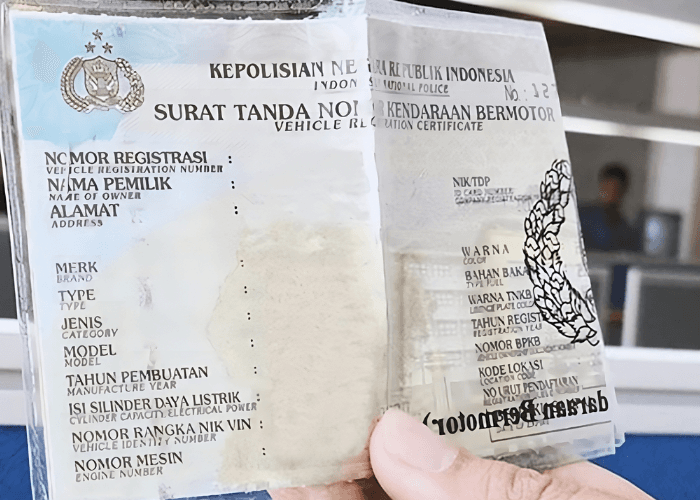 KEPOLISIAN NE RA REPUBLIK INDONESIA
INDON NATIONAL POLICE
No. : 12
SURAT TANDA NOMOR KENDARAAN BERMOTOR
VEHICLE REG RATION CERTIFICATE
NOMOR REGISTRASI :
VEHICLE REGISTRATION NUMBER
NAMA PEMILIK :
NAME OF OWNER
ALAMAT :
ADDRESS
MERK :
BRAND
TYPE :
TYPE
JENIS :
CATEGORY
MODEL :
MODEL
TAHUN PEMBUATAN :
MANUFACTURE YEAR
ISI SILINDER DAYA LISTRIK :
CYLINDER CAPACITY/ELECTRICAL POWER
NOMOR RANGKA NIK VIN :
VEHICLE IDENTITY NUMBER
NOMOR MESIN :
ENGINE NUMBER
NIK/TDP
ID CARD NUMBER
COMPANY REGISTRATION
WARNA
COLOR
BAHAN BAKA
TYPE FUEL
WARNA TNKB
LICENCE PLATE COLO
TAHUN REGISTR
REGISTRATION YEAR
NOMOR BPKB
KODE LOKASI
LOCATION CODE
NO URUT PENDAFTARAN
daraan Bermotor)